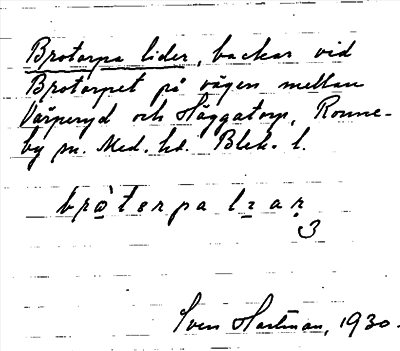 Brotorpa lider, backar vid
Brotorpet på vägen mellan
Värperyd och Häggatorp, Ronne-
by sn. Med. hd. Blek. l.
brotɘrpa lɪar
3
Sven Hartman, 1930.